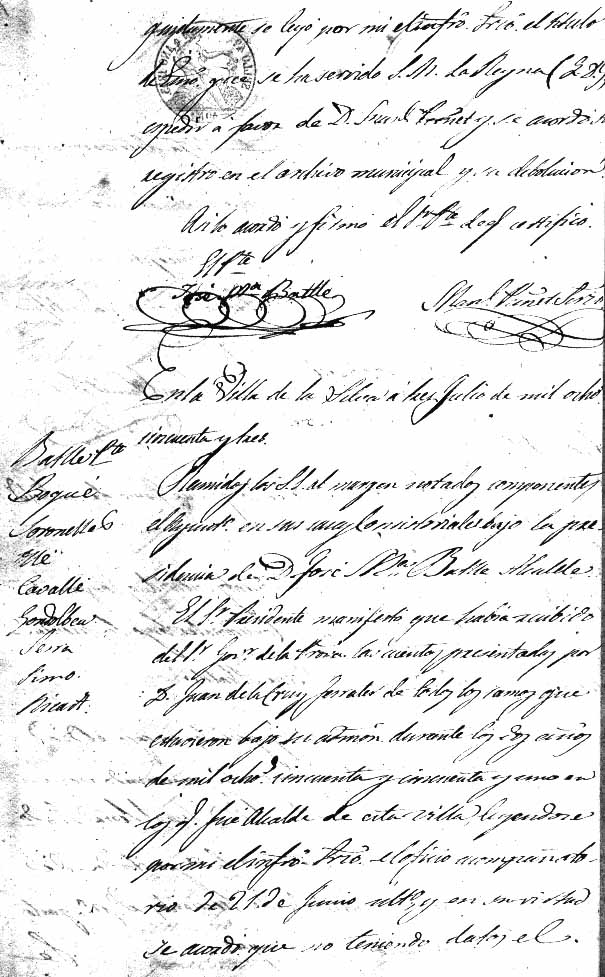 se leyó por mi el infro. Srio. el titulo
de que se ha servido S. M. La Reyna (Q. D. G.
espedir a favor de D. y se acordó
registro en el archivo municipal y su debolucion.
Asi lo acordó y firmó el Sr. Pte. de q. certifico.
El Pte.
José Ma. Batlle
Manl. Serio
En la Villa de la Selva á tres Julio de mil ocho
cincuenta y tres.
Batlle Pte.
Boqué
Coronellas
Cavallé
Serra
Ricart.
Reunidos los S.S. al margen notados componentes
el Ayunto. en sus Consistoriales bajo la pre-
sidencia de D. José Ma. Batlle Alcalde.
El Sr. Presidente manifestó que habia recibido
del Sr. Gor. de la Prova. las cuentas presentadas por
D. Juan de la Cruz Ferrater de todos los ramos que
estuvieron bajo su admón. durante los dos años
de mil ocho. cincuenta y cincuenta y uno en
los q. fue Alcalde de esta villa, leyendose
por mi el infro. Srio. el oficio acompañato-
rio de 21 de Junio ulto. y en su virtud
se acordó que no teniendo datos el